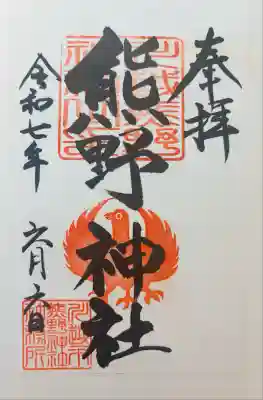 奉拝
熊野神社
令和七年
六月六日